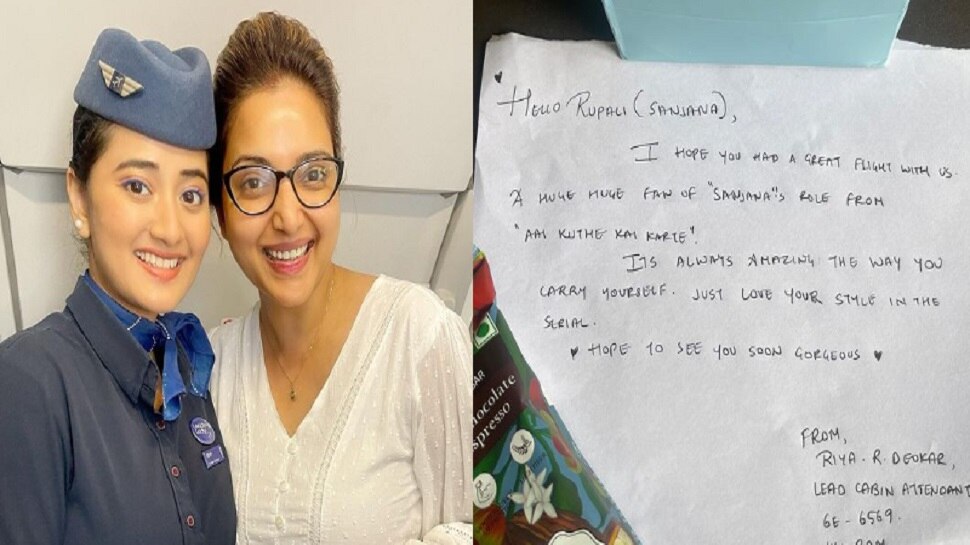 Hello Rupali (Sanjana),
I hope you had a great flight with us.
A huge huge fan of "Sanjana"'s role from
"Aai Kuthe Kai Karte".
Its always amazing the way you
carry yourself. Just love your style in the
serial.
♥ Hope to see you soon gorgeous ♥
From,
Riya. R. Deokar,
Lead Cabin Attendant
6E - 6569.
chocolate